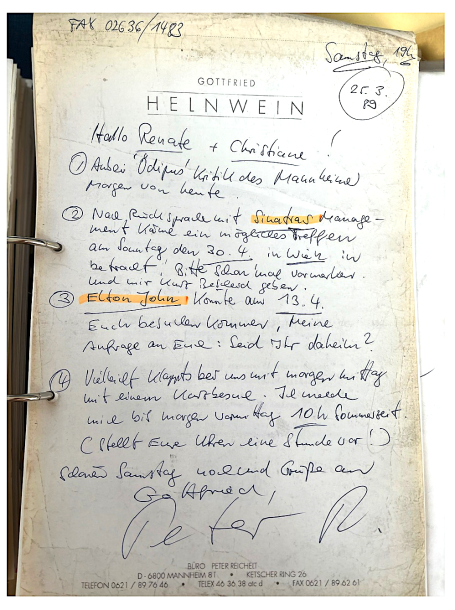 FAX 02636/1483
Samstag, 19h
25.3.
89
GOTTFRIED
HELNWEIN
Hallo Renate + Christiane!
① Anbei "Ödipus" Kritik des Mannheimer
Morgen von heute.
② Nach Rücksprache mit Sinatras Manage-
ment käme ein mögliches Treffen
am Sonntag, den 30.4. in Wien in
betracht. Bitte schon mal vormerken
und mir kurz Bescheid geben.
③ Elton John könnte am 13.4.
Euch besuchen kommen, meine
Anfrage an Euch: Seid Ihr daheim?
④ Vielleicht klappts bei uns mit morgen mittag
mit einem Kurzbesuch. Ich melde
mich bis morgen vormittag 10h Sommerzeit.
(Stellt Eure Uhren eine Stunde vor!)
Schönen Samstag noch und Grüße an
Gottfried,
Peter R.
BÜRO PETER REICHELT
D - 6800 MANNHEIM 81 • KETSCHER RING 26
TELEFON 0621 / 89 76 46 • TELEX 46 36 38 dc d • FAX 0621 / 89 62 61